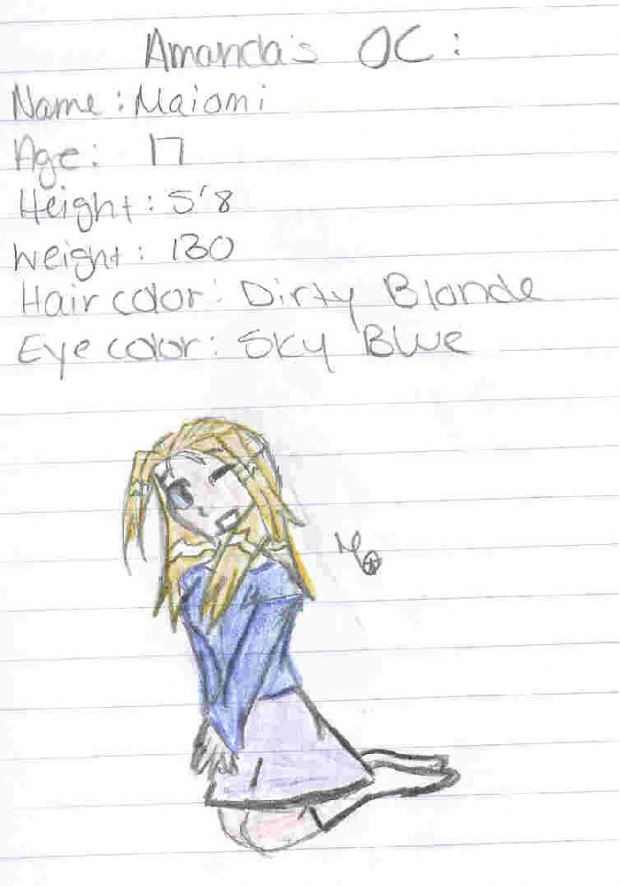 Amanda's OC:
Name: Maiomi
Age: 17
Height: 5'8
Weight: 130
Hair color: Dirty Blonde
Eye color: Sky Blue